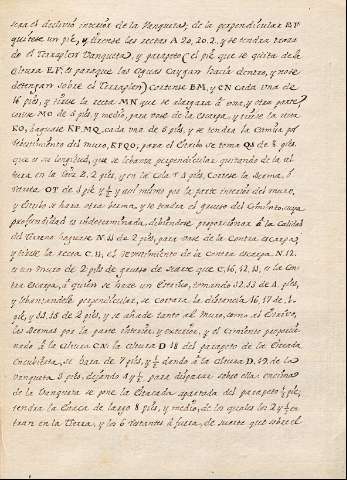 sera el declivio interior de la Banqueta; de la perpendicular EF
quitese un pie, y tirense las rectas A 20, 20.2. y se tendra
el Terraplen Banqueta, y parapeto (el pie que se quita de la
altura EF. es para que las Aguas Caygan hacia dentro, y no se
detengan sobre el Terraplen) Cortense BM, y CN cada una de
16 pies, y tirese la recta MN que se alargara á una, y otra parte,
MO de 5 pies y medio, para vase de la Escarpa, y tirese la recta
KO, hagase KP, MQ, cada una de 5 pies, y se tendra la Camisa por
revestimiento del muro, KPQO, para el Estrivo se toma QI de 8 pies,
que es su longitud, que se lebanta perpendicular quitando de la al
tura en la 2 pies, y en la Cola 3 pies, Cortese la Berma, ó
OT de 1 pie y ½ y assi mismo por la parte interior del muro,
y Estrivo se hara otra berma, y se tendra el grueso del Cimiento, cuya
profundidad es indeterminada, debiendose proporcionar á la Calidad
del Terreno hagase N.11 de 2 pies, para vase de la Contra escarpa,
y tirese la recta C.11, el revestimiento de la Contra escarpa, N.12.
es un muro de 2 pies de grueso de suerte que C,16,12,11, es la Con
tra Escarpa, á quien se hace un Estrivo, tomando 12.13 de 4 pies,
y lebantandole perpendicular, se cortara la distancia 16, 17 de 1
pie, y 13, 18 de 2 pies, y se añade tanto al Muro, como al Estrivo,
las Bermas por la parte interior, y exterior, y el Cimiento proporcio
nado á la altura CN. la altura D 18 del parapeto de la Estrada
Encubierta, se hara de 7 pies, y ½ dando á la altura D. 19 de la
Banqueta 3 pies, dejando 4 y ½ para disparar sobre ella encima
de la Banqueta se pone la Estacada apartada del parapeto ½ pie,
tendra la Estaca de largo 8 pies, y medio, de los quales los 2 y ½ en
tran en la Tierra, y los 6 restantes á fuera, de suerte que sobre el